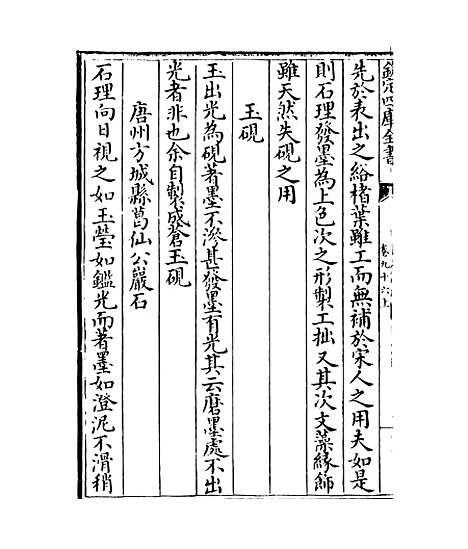 欽定四庫全書
卷九十六上
先於表出之綌楮葉雖工而無補於宋人之用夫如是
則石理發墨為上色次之形製工拙又其次文藻緣飾
雖天然失硯之用
玉硯
玉出光為硯著墨不滲甚發墨有光其云磨墨處不出
光者非也余自製成蒼玉硯
唐州方城縣葛仙公巖石
石理向日視之如玉瑩如鑑光而著墨如澄泥不滑稍